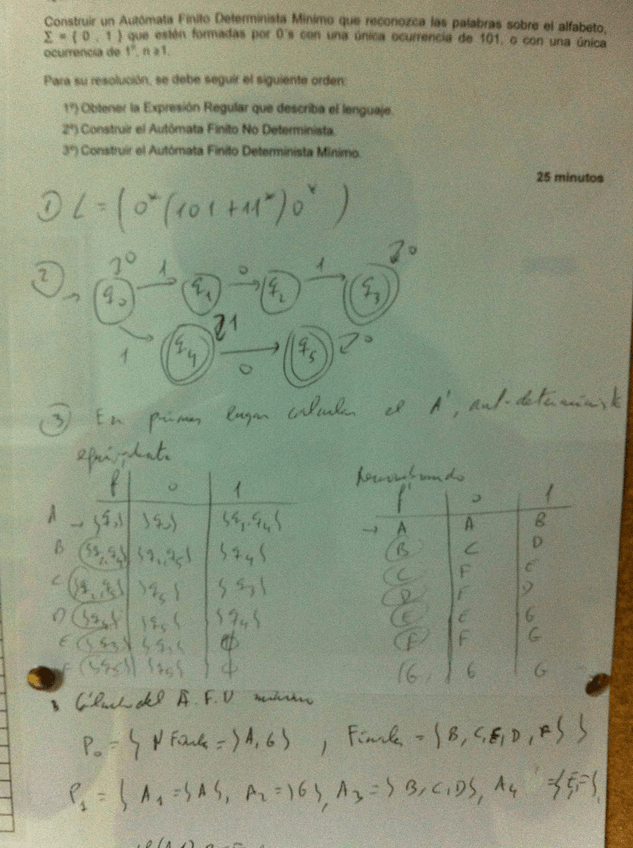 Construir un Autómata Finito Determinista Mínimo que reconozca las palabras sobre el alfabeto,
Σ = { 0 , 1 } que estén formadas por 0's con una única ocurrencia de 101, o con una única
ocurrencia de 1ⁿ, n ≥1.
Para su resolución, se debe seguir el siguiente orden:
1º) Obtener la Expresión Regular que describa el lenguaje.
2º) Construir el Autómata Finito No Determinista.
3º) Construir el Autómata Finito Determinista Mínimo.
25 minutos
① L = ( 0* (101 + 11*) 0* )
② → q₀ 0 1 q₁ 0 q₂ 1 q₃ 0
1 q₄ 1 0 q₅ 0
③ En primer lugar calcular el A', aut. determinista
equivalente
f 0 1
A → {q₀} {q₀} {q₁,q₄}
B {q₁,q₄} {q₂,q₅} {q₄}
C {q₂,q₅} {q₅} {q₃}
D {q₄} {q₅} {q₄}
E {q₃} {q₃} ϕ
F {q₅} {q₅} ϕ
f' 0 1
→ A A B
B C D
C F E
D F D
E E G
F F G
G G G
Cálculo del A.F.D mínimo
P₀ = { N Finales = {A, G} , Finales = {B, C, E, D, F} }
P₁ = { A₁ = {A}, A₂ = {G}, A₃ = {B, C, D}, A₄ = {E, F},